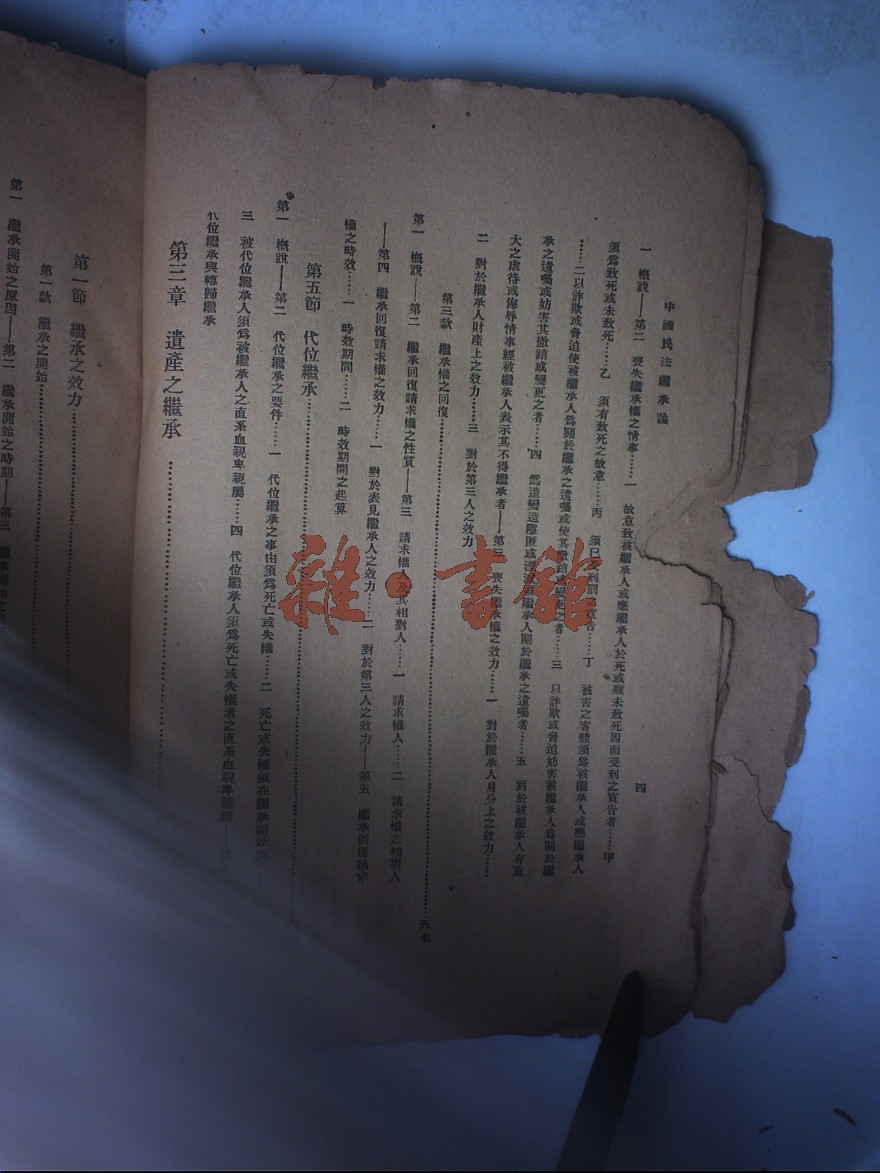 中國民法繼承論
四
一 概說——第二 喪失繼承權之情事……一 故意致被繼承人或應繼承人於死或雖未致死因而受刑之宣告者……甲
須爲致死或未致死……乙 須有致死之故意……丙 須已受刑罰之宣告……丁 被害之客體須爲被繼承人或應繼承人
……二以詐欺或脅迫使被繼承人爲關於繼承之遺囑或使其撤銷或變更之者……三 以詐欺或脅迫妨害被繼承人爲關於繼
承之遺囑或妨害其撤銷或變更之者……四 僞造變造隱匿或湮滅被繼承人關於繼承之遺囑者……五 對於被繼承人有重
大之虐待或侮辱情事經被繼承人表示其不得繼承者——第三 喪失繼承權之效力……一 對於繼承人身分上之效力……
二 對於繼承人財產上之效力……三 對於第三人之效力
第三款 繼承權之回復……五七
第一 概說——第二 繼承回復請求權之性質——第三 請求權人及其相對人……一 請求權人……二 請求權之相對人
——第四 繼承回復請求權之效力……一 對於表見繼承人之效力……二 對於第三人之效力——第五 繼承回復請求
權之時效……一 時效期間……二 時效期間之起算
第五節 代位繼承……
第一 概說——第二 代位繼承之要件……一 代位繼承之事由須爲死亡或失權……二 死亡或失權須在繼承開始前……
三 被代位繼承人須爲被繼承人之直系血親卑親屬……四 代位繼承人須爲死亡或失權者之直系血親卑親屬——
代位繼承與轉歸繼承
第三章 遺產之繼承……
第一節 繼承之效力……
第一款 繼承之開始……
第一 繼承開始之原因——第二 繼承開始之時期——第三 繼承開始之
雜·書館